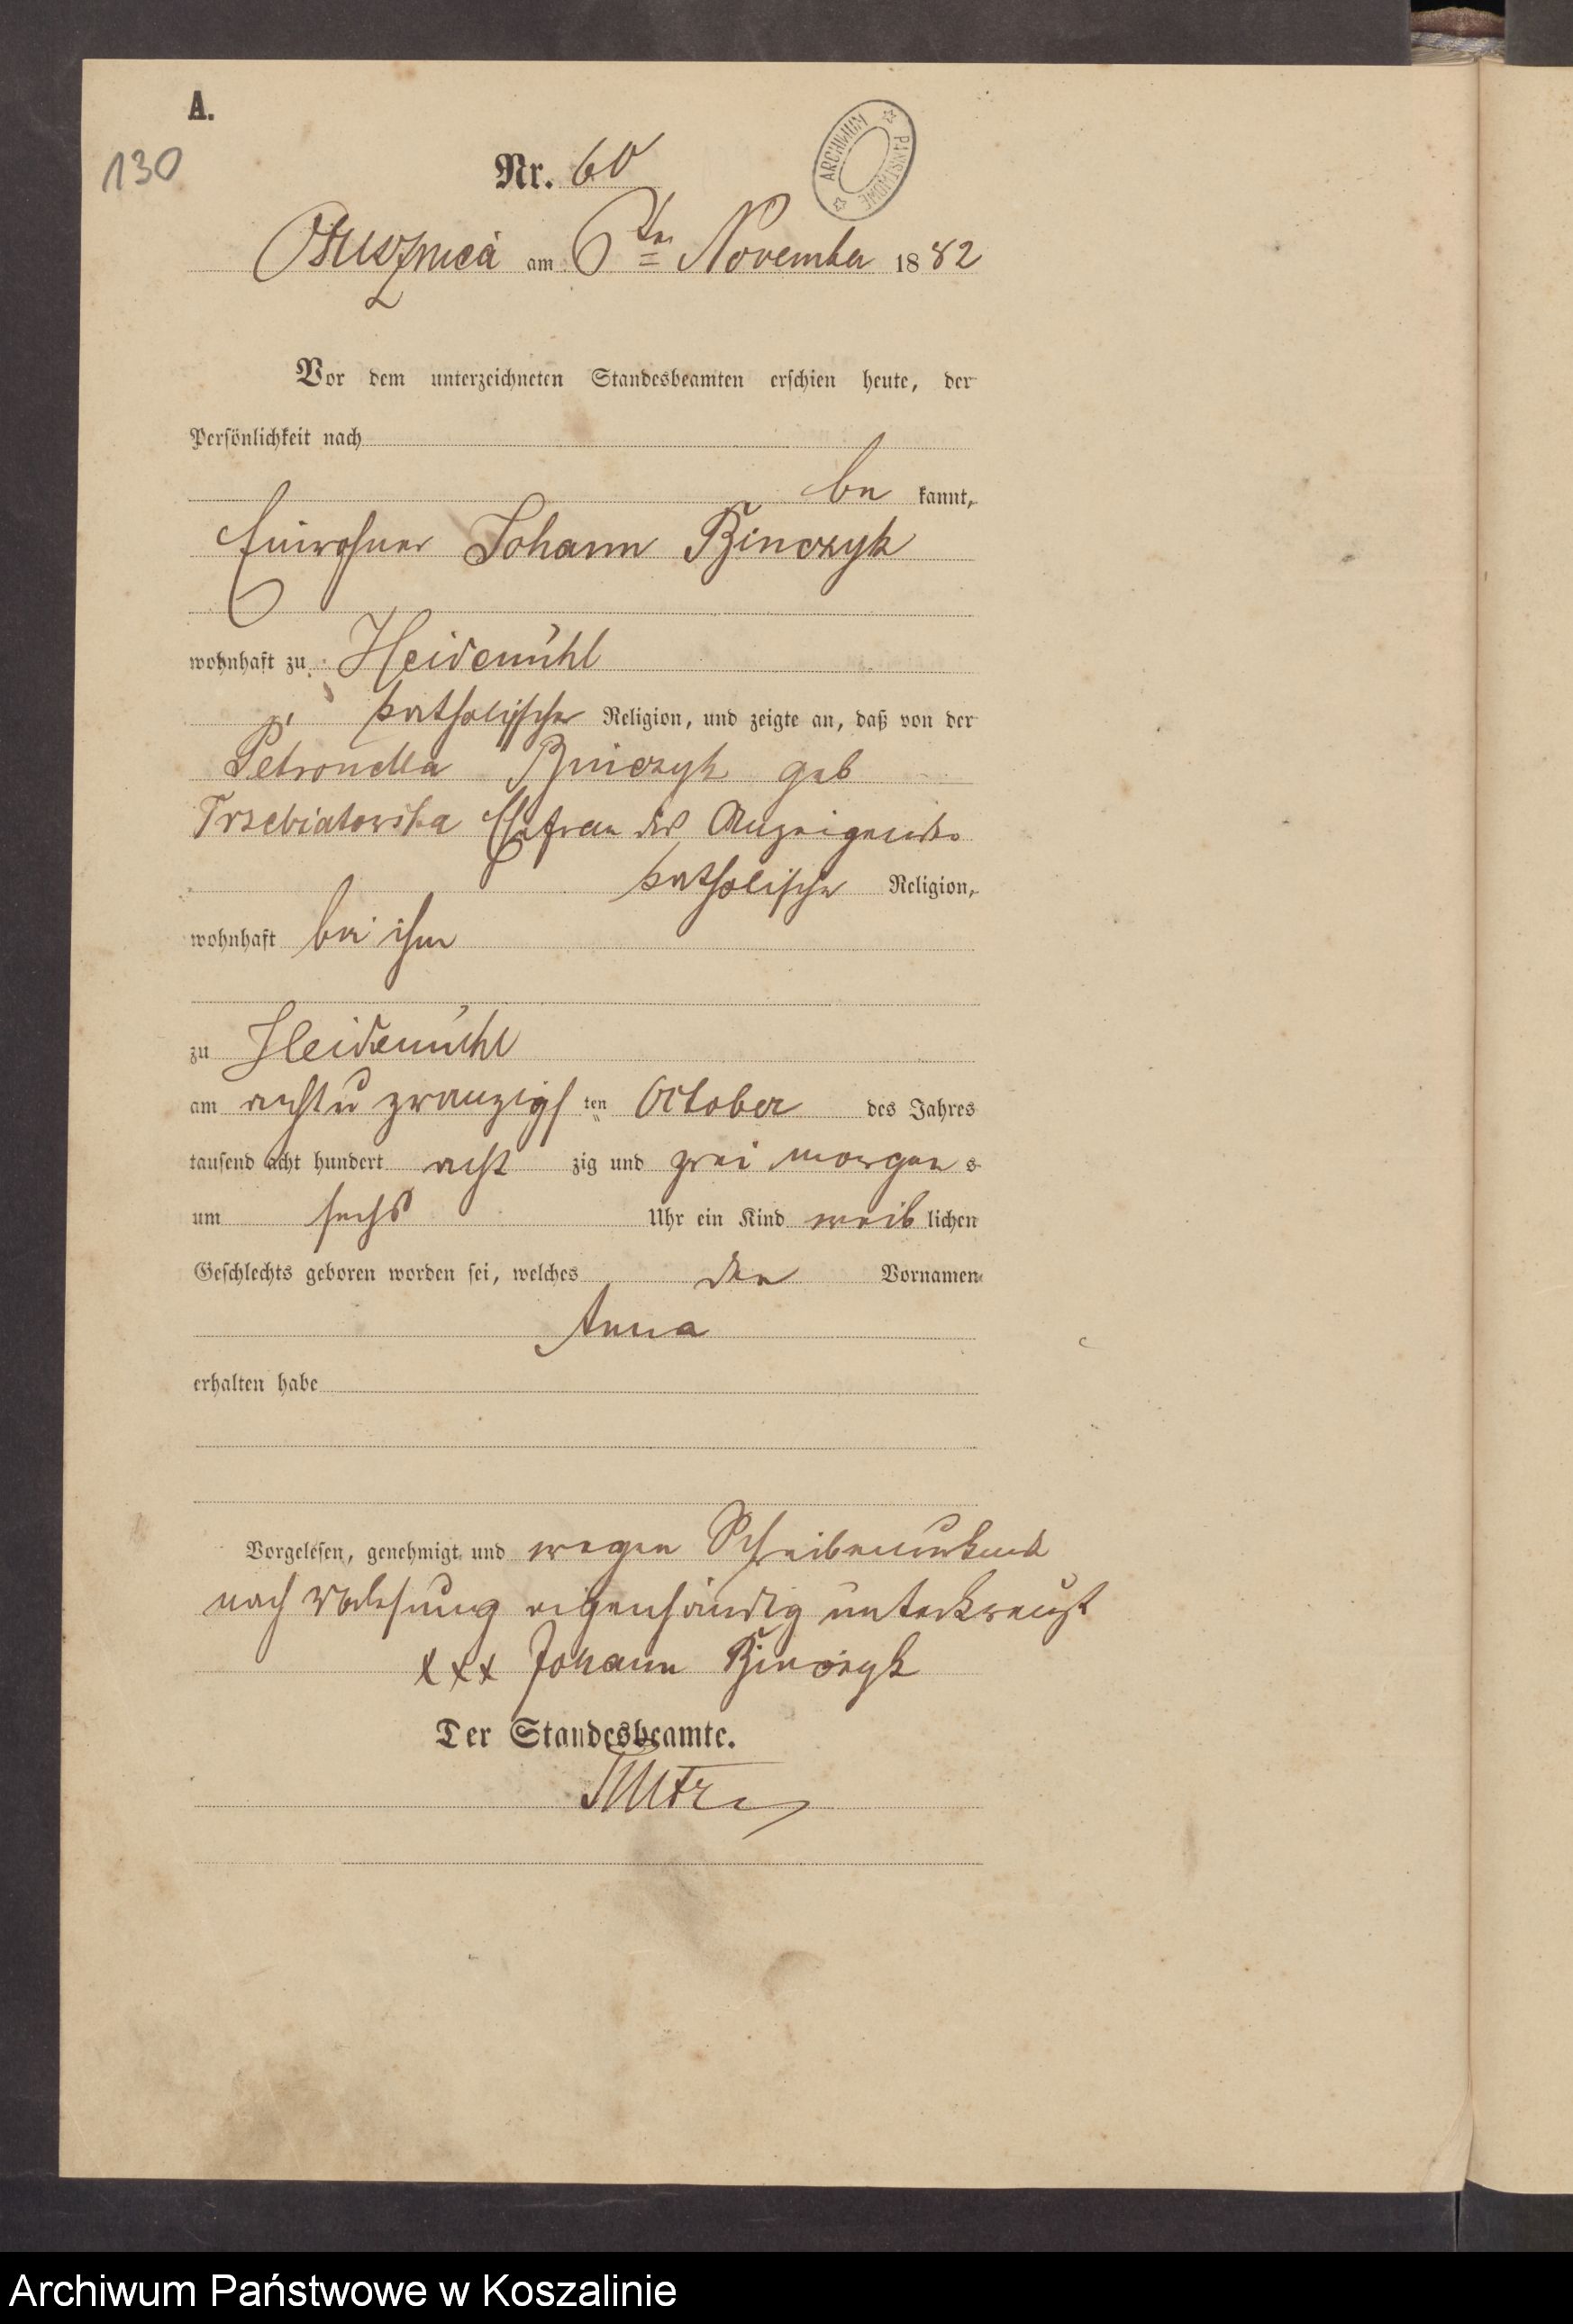 A.
130
Nr. 60
ARCHIWUM PAŃSTWOWE
Ostusznica am 6ten November 1882
Vor dem unterzeichneten Standesbeamten erschien heute, der
Persönlichkeit nach
be kannt,
Einwohner Johann Binczyk
wohnhaft zu Heidemühl
katholischer Religion, und zeigte an, daß von der
Petronella Binczyk geb
Trzebiatowska Ehefrau des Anzeigenden
katholischer Religion,
wohnhaft bei ihm
zu Heidemühl
am acht u zwanzigsten October des Jahres
tausend acht hundert acht zig und zwei morgens
um sechs Uhr ein Kind weiblichen
Geschlechts geboren worden sei, welches den Vornamen
Anna
erhalten habe
Vorgelesen, genehmigt und wegen Schreibensunkunde
nach Vorlesung eigenhändig unterkreuzt
xxx Johann Binczyk
Der Standesbeamte.
Archiwum Państwowe w Koszalinie